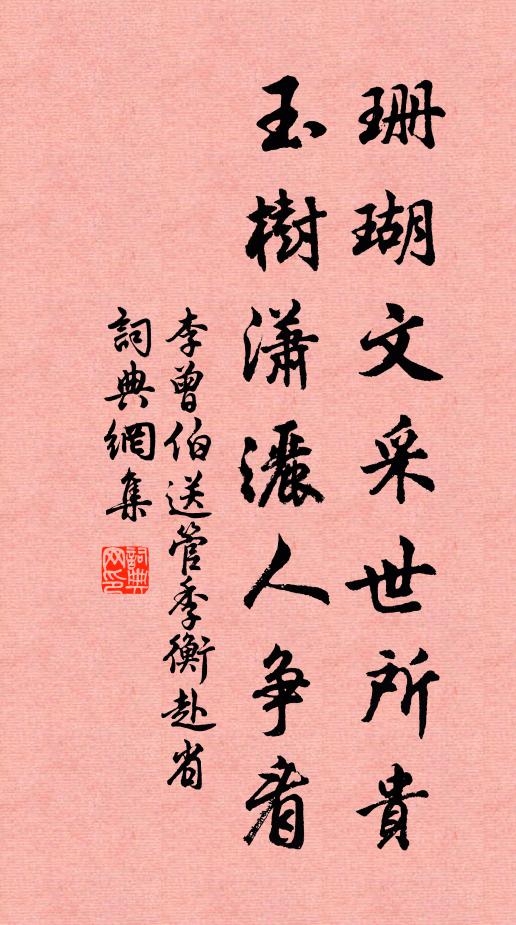 珊瑚文采世所貴
玉樹瀟灑人争看
李曾伯送管季衡赴省
詞典網集
詞典网印